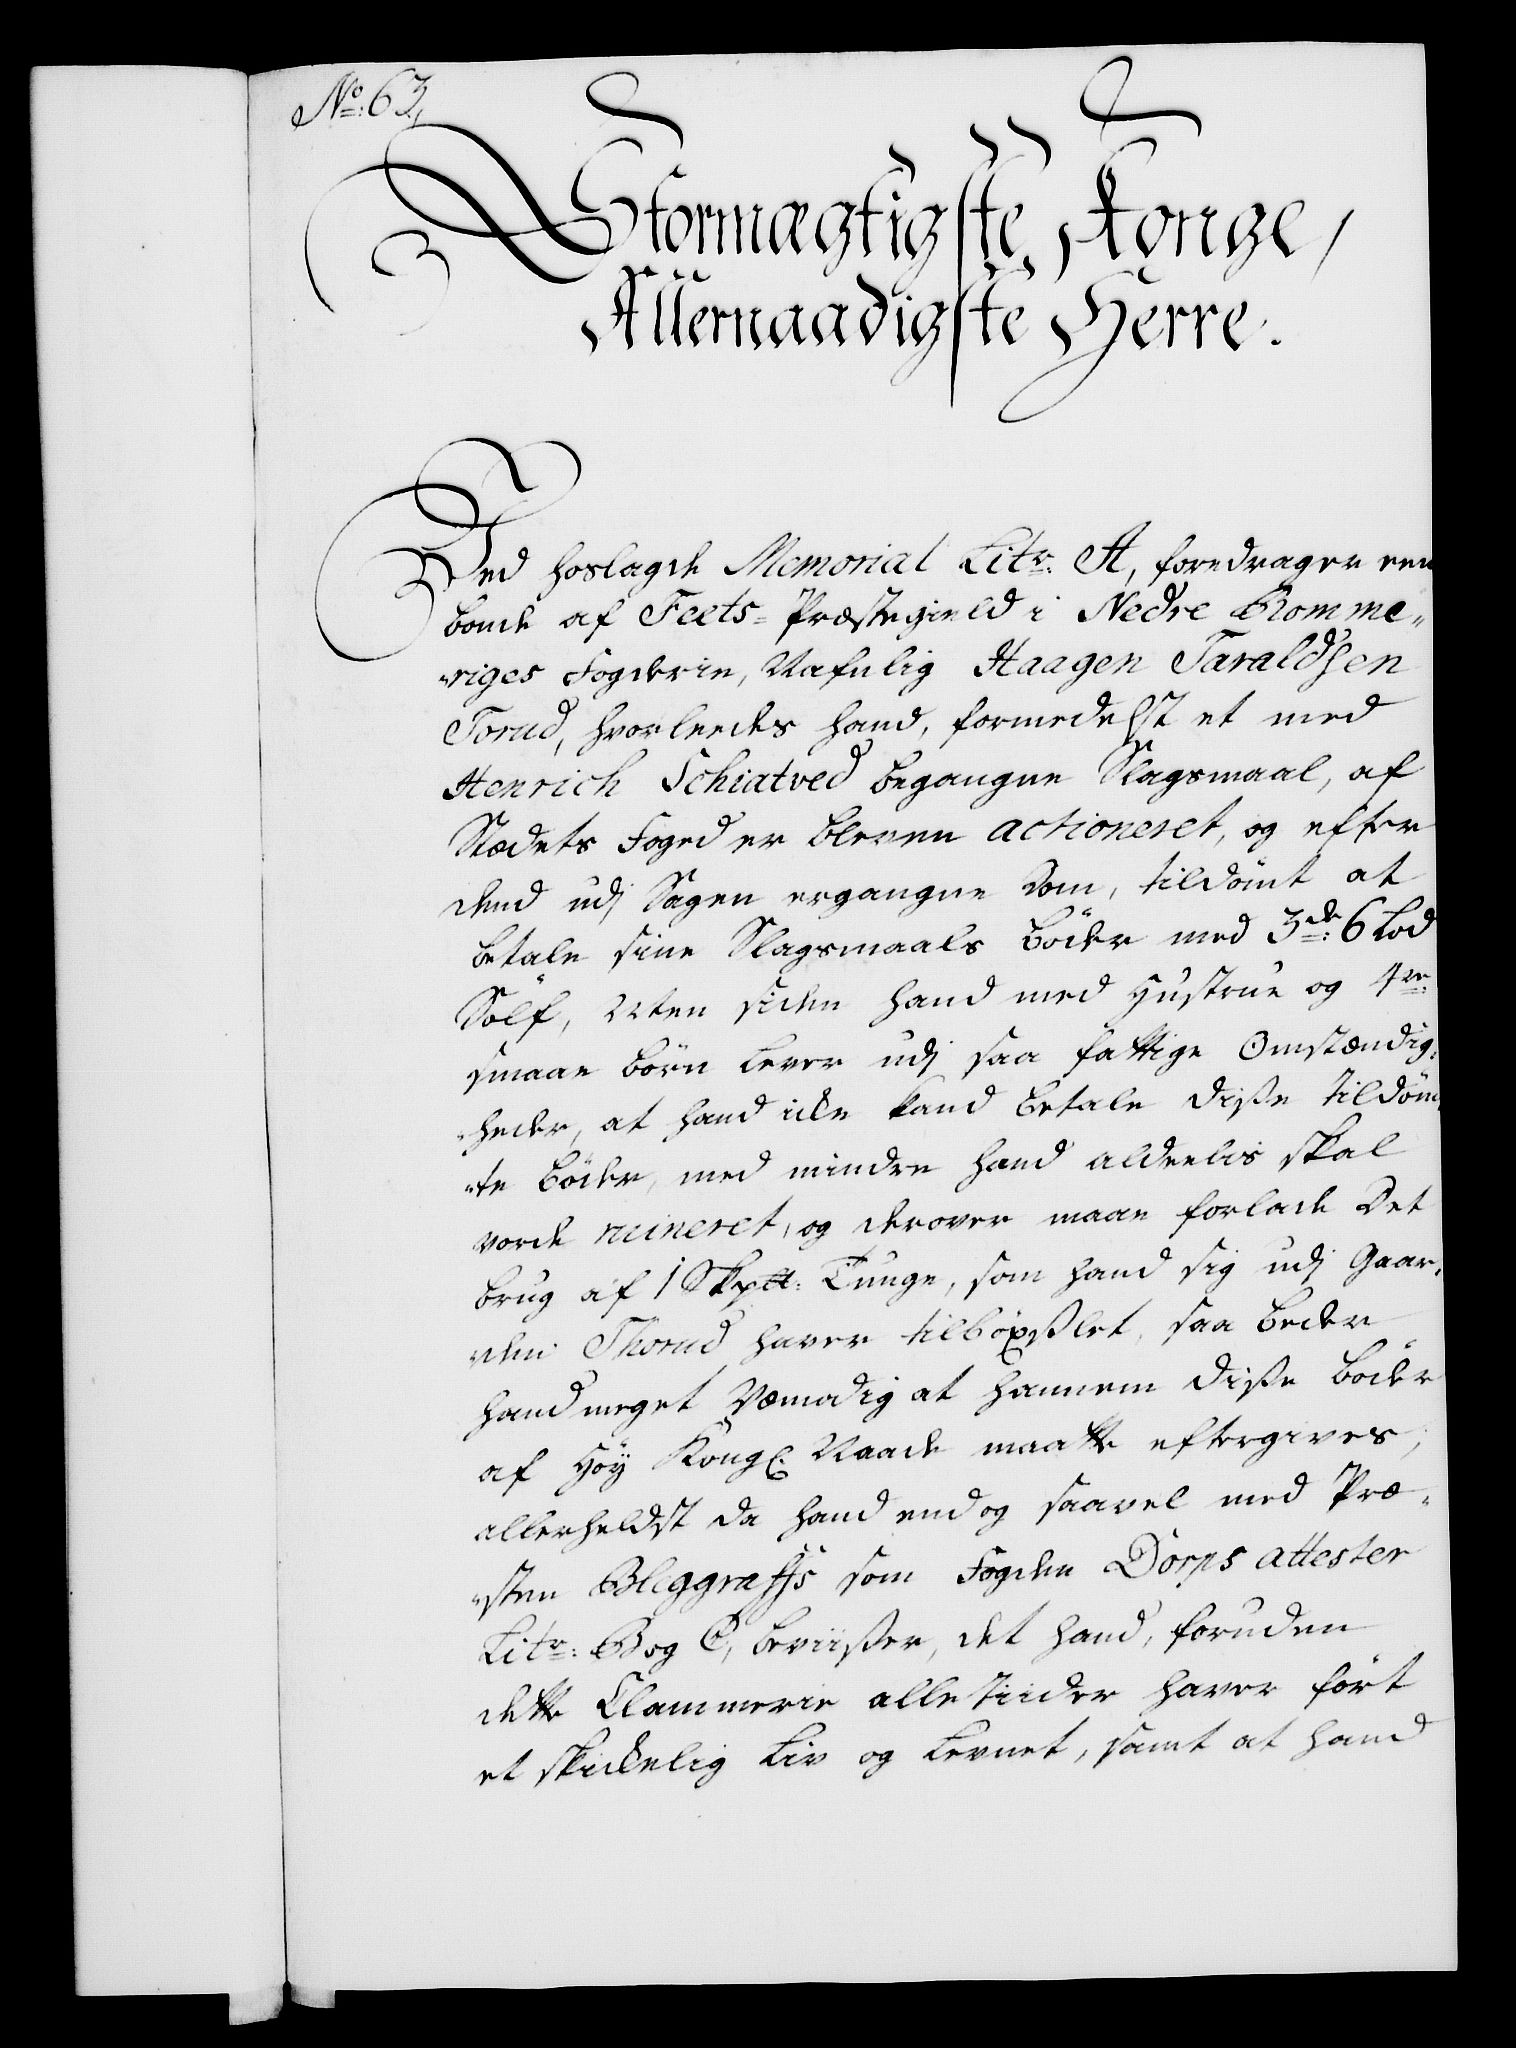 No: 63,
Stormægtigste Konge,
Allernaadigste Herre.
Ved hoslagde Memorial Litr: A, foredrager een
bonde af Feets-Præstegield i Nedre Romme„
„riges Fogderie, Nafnlig Haagen Taraldsen
Torud, hvorleedes hand, formedelst et med
Henrich Schiatved begangne Slagsmaal, af
Stædets Foged er bleven actioneret, og efter
dend udj Sagen ergangne Dom, tildömt at
betale sine Slagsmaals böder med 3de: 6 Lod
Sölf, Men siden hand med Hustrue og 4re:
smaae börn lever udj saa fattige Omstændig„
„heder, at hand icke kand betale diße tildöm„
„te böder, med mindre hand aldeelis skal
vorde ruineret, og derover maae forlade Det
brug af 1 Skp℔: Tunge, som hand sig udj Gaar„
„den Thorud haver tilböxßlet, saa beder
hand meget Vemodig at hannem diße böder
af Höy Kongl. Naade maatte eftergives,
allerheldst da hand endog saavel med Præ„
„sten Bleggraffs som Fogden Dorps attester
Litr: B og C, beviißer, det hand, foruden
dette Clammerie alle tiider haver fört
et skickelig Liv og Levnet, samt at hand